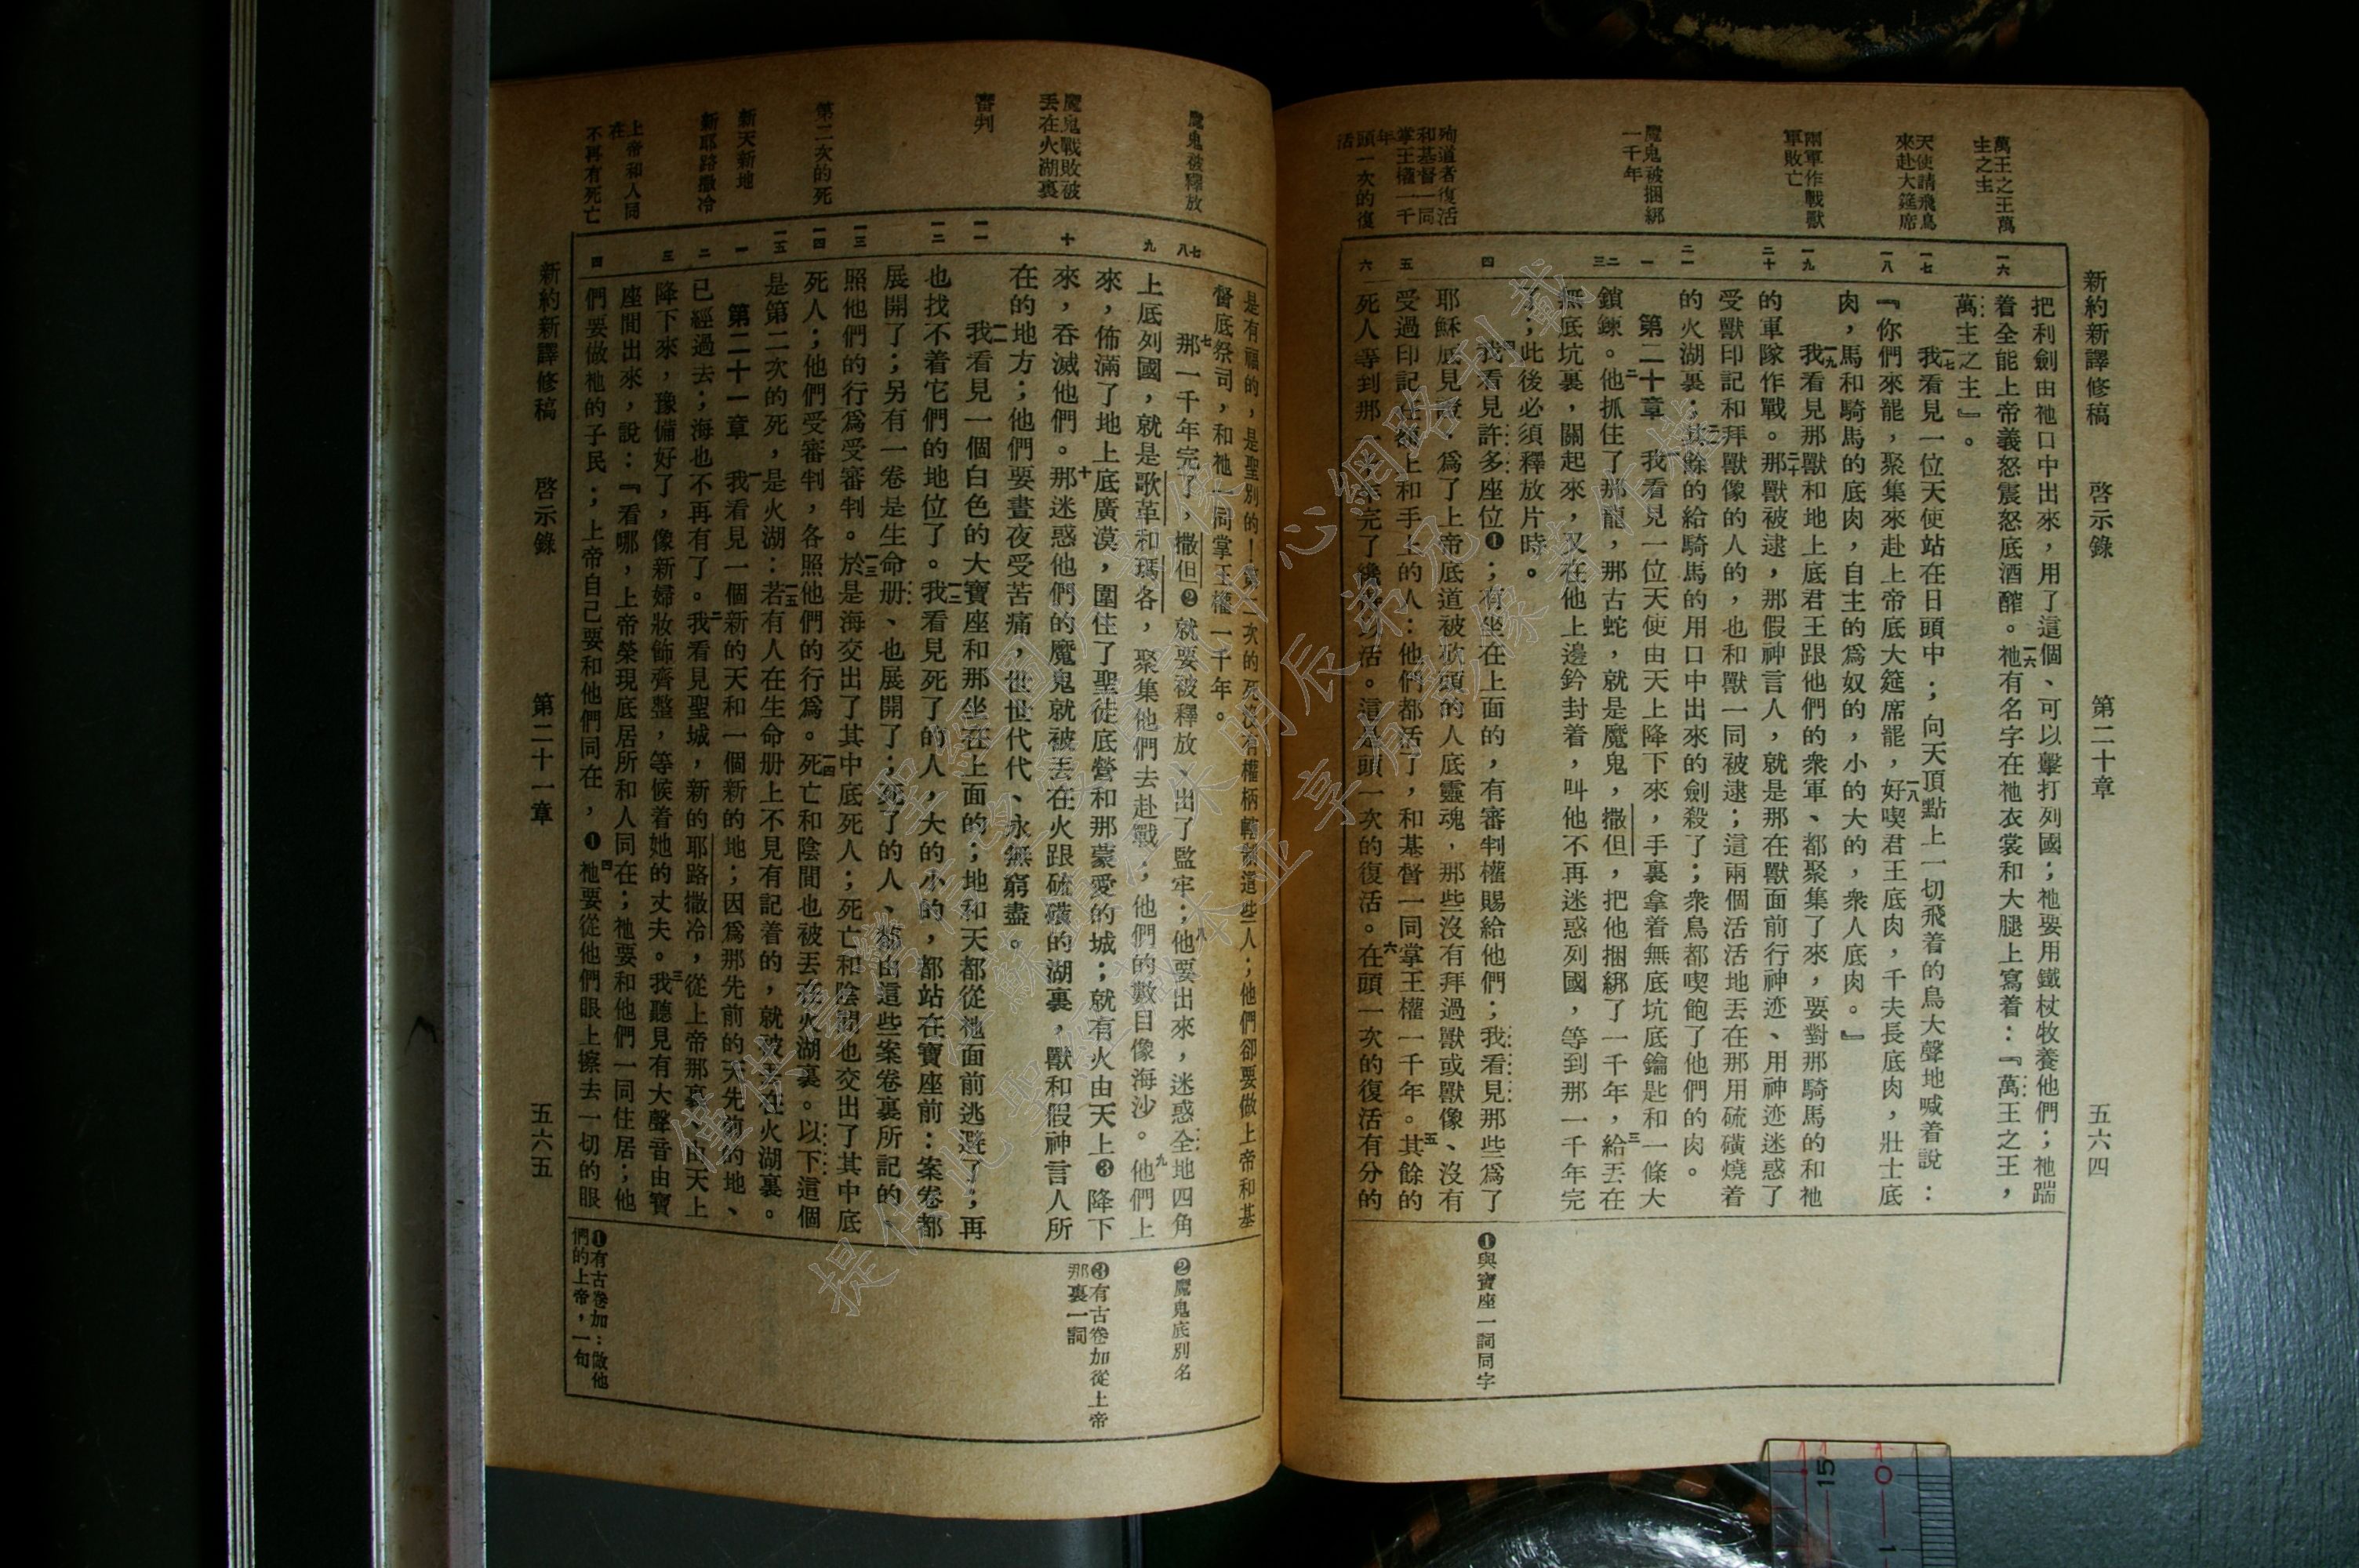 新約新譯修稿 啓示錄 第二十章 五六四
萬王之王萬
主之主
天使請飛鳥
來赴大筵席
兩軍作戰獸
軍敗亡
魔鬼被捆綁
一千年
殉道者復活
和基督一同
掌王權一千
年
頭一次的復
活
一六
一七
一八
一九
二十
二一
一
二
三
四
五
六
把利劍由祂口中出來，用了這個、可以擊打列國；祂要用鐵杖牧養他們；祂踹
着全能上帝義怒震怒底酒醡。一六祂有名字在祂衣裳和大腿上寫着：『萬王之王，
萬主之主』。
一七我看見一位天使站在日頭中；向天頂點上一切飛着的鳥大聲地喊着說：
『你們來罷，聚集來赴上帝底大筵席罷，一八好喫君王底肉，千夫長底肉，壯士底
肉，馬和騎馬的底肉，自主的爲奴的，小的大的，衆人底肉。』
一九我看見那獸和地上底君王跟他們的衆軍、都聚集了來，要對那騎馬的和祂
的軍隊作戰。二十那獸被逮，那假神言人，就是那在獸面前行神迹、用神迹迷惑了
受獸印記和拜獸像的人的，也和獸一同被逮；這兩個活活地丟在那用硫磺燒着
的火湖裏；二一其餘的給騎馬的用口中出來的劍殺了；衆鳥都喫飽了他們的肉。
第二十章 一我看見一位天使由天上降下來，手裏拿着無底坑底鑰匙和一條大
鎖鍊。二他抓住了那龍，那古蛇，就是魔鬼，撒但，把他捆綁了一千年，三給丟在
無底坑裏，關起來，又在他上邊鈐封着，叫他不再迷惑列國，等到那一千年完
了；此後必須釋放片時。
四我看見許多座位❶；有坐在上面的，有審判權賜給他們；我看見那些爲了
耶穌底見證，爲了上帝底道被砍頭的人底靈魂，那些沒有拜過獸或獸像、沒有
受過印記在額上和手上的人：他們都活了，和基督一同掌王權一千年。五其餘的
死人等到那一千年完了纔復活。這是頭一次的復活。六在頭一次的復活有分的
❶與寶座一詞同字
魔鬼被釋放
魔鬼戰敗被
丟在火湖裏
審判
第二次的死
新天新地
新耶路撒冷
上帝和人同
在
不再有死亡
七
八
九
十
一一
一二
一三
一四
一五
一
二
三
四
是有福的，是聖別的！第二次的死沒有權柄轄制這些人；他們卻要做上帝和基
督底祭司，和祂一同掌王權一千年。
七那一千年完了，撒但❷就要被釋放、出了監牢；八他要出來，迷惑全地四角
上底列國，就是歌革和瑪各，聚集他們去赴戰；他們的數目像海沙。九他們上
來，佈滿了地上底廣漠，圍住了聖徒底營和那蒙愛的城；就有火由天上❸降下
來，吞滅他們。十那迷惑他們的魔鬼就被丟在火跟硫磺的湖裏，獸和假神言人所
在的地方；他們要晝夜受苦痛，世世代代、永無窮盡。
一一我看見一個白色的大寶座和那坐在上面的；地和天都從祂面前逃避了；再
也找不着它們的地位了。一二我看見死了的人，大的小的，都站在寶座前：案卷都
展開了；另有一卷是生命册、也展開了；死了的人、都由這些案卷裏所記的、
照他們的行爲受審判。一三於是海交出了其中底死人；死亡和陰間也交出了其中底
死人；他們受審判，各照他們的行爲。一四死亡和陰間也被丟在火湖裏。以下這個
是第二次的死，是火湖：一五若有人在生命册上不見有記着的，就被丟在火湖裏。
第二十一章 一我看見一個新的天和一個新的地；因爲那先前的天先前的地、
已經過去；海也不再有了。二我看見聖城，新的耶路撒冷，從上帝那裏、由天上
降下來，豫備好了，像新婦妝飾齊整，等候着她的丈夫。三我聽見有大聲音由寶
座間出來，說：『看哪，上帝榮現底居所和人同在；祂要和他們一同住居；他
們要做祂的子民；上帝自己要和他們同在，❶四祂要從他們眼上擦去一切的眼
❷魔鬼底別名
❸有古卷加從上帝
那裏一詞
❶有古卷加：做他
們的上帝，一句
新約新譯修稿 啓示錄 第二十一章 五六五
15
0
1